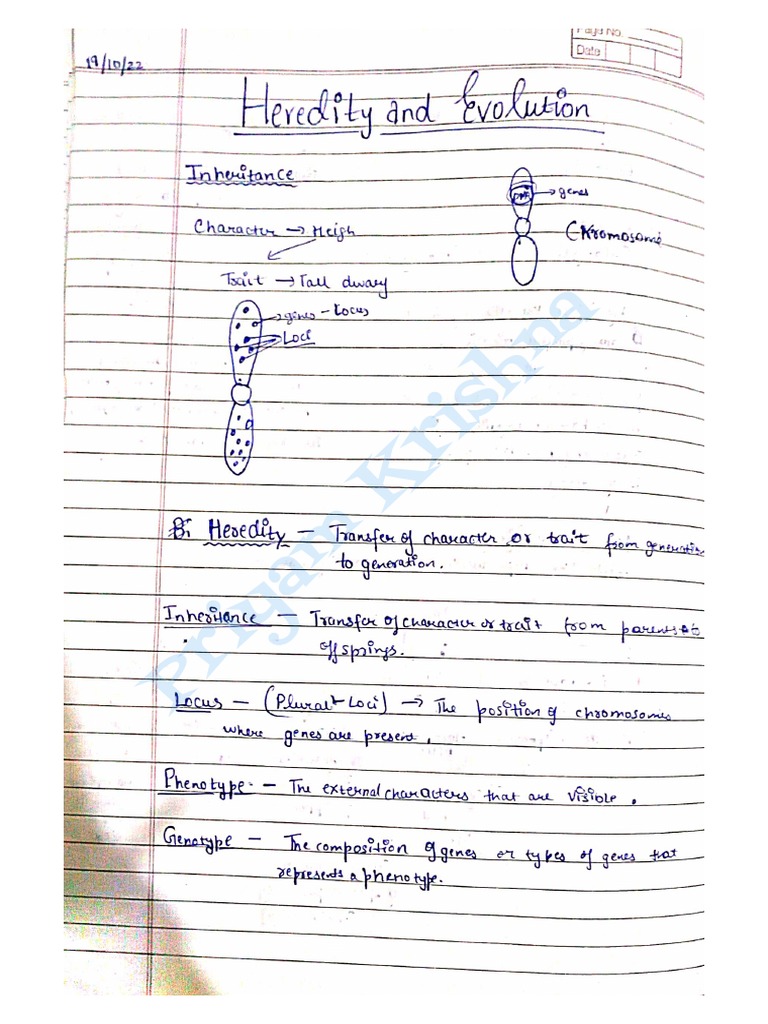 Page No.
Date
19/10/22
Heredity and Evolution
Inheritance
genes
DNA
Character → Heigh
Chromosome
Trait → Tall dwarf
genes - Locus
Loci
Heredity - Transfer of character or trait from generation
to generation.
Inheritance - Transfer of character or trait from parents to
offsprings.
Locus - (Plural - Loci) → The position of chromosomes
where genes are present.
Phenotype - The external characters that are visible.
Genotype - The composition of genes or types of genes that
represents a phenotype.
Priyam Krishna